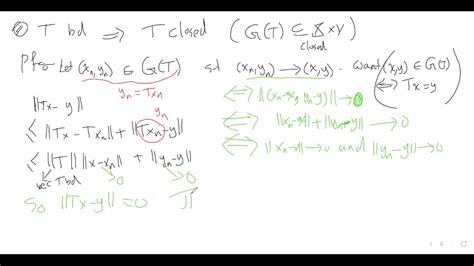 T bd ⟹ T closed ( G(T) ⊆ X × Y )
closed
Let (xn, yn) ∈ G(T) s.t (xn, yn) ⟶ (x, y). want (x, y) ∈ G(T)
yn = Txn
⟺ Tx = y
‖Tx - y‖
≤ ‖Tx - Txn‖ + ‖Txn - y‖
yn
≤ ‖T‖ ‖x - xn‖ + ‖yn - y‖
bec T bd →0 →0
So ‖Tx - y‖ = 0
⟺ ‖(xn - x, yn - y)‖ ⟶ 0
⟺ ‖xn - x‖ + ‖yn - y‖ ⟶ 0
⟺ ‖xn - x‖ ⟶ 0 and ‖yn - y‖ ⟶ 0